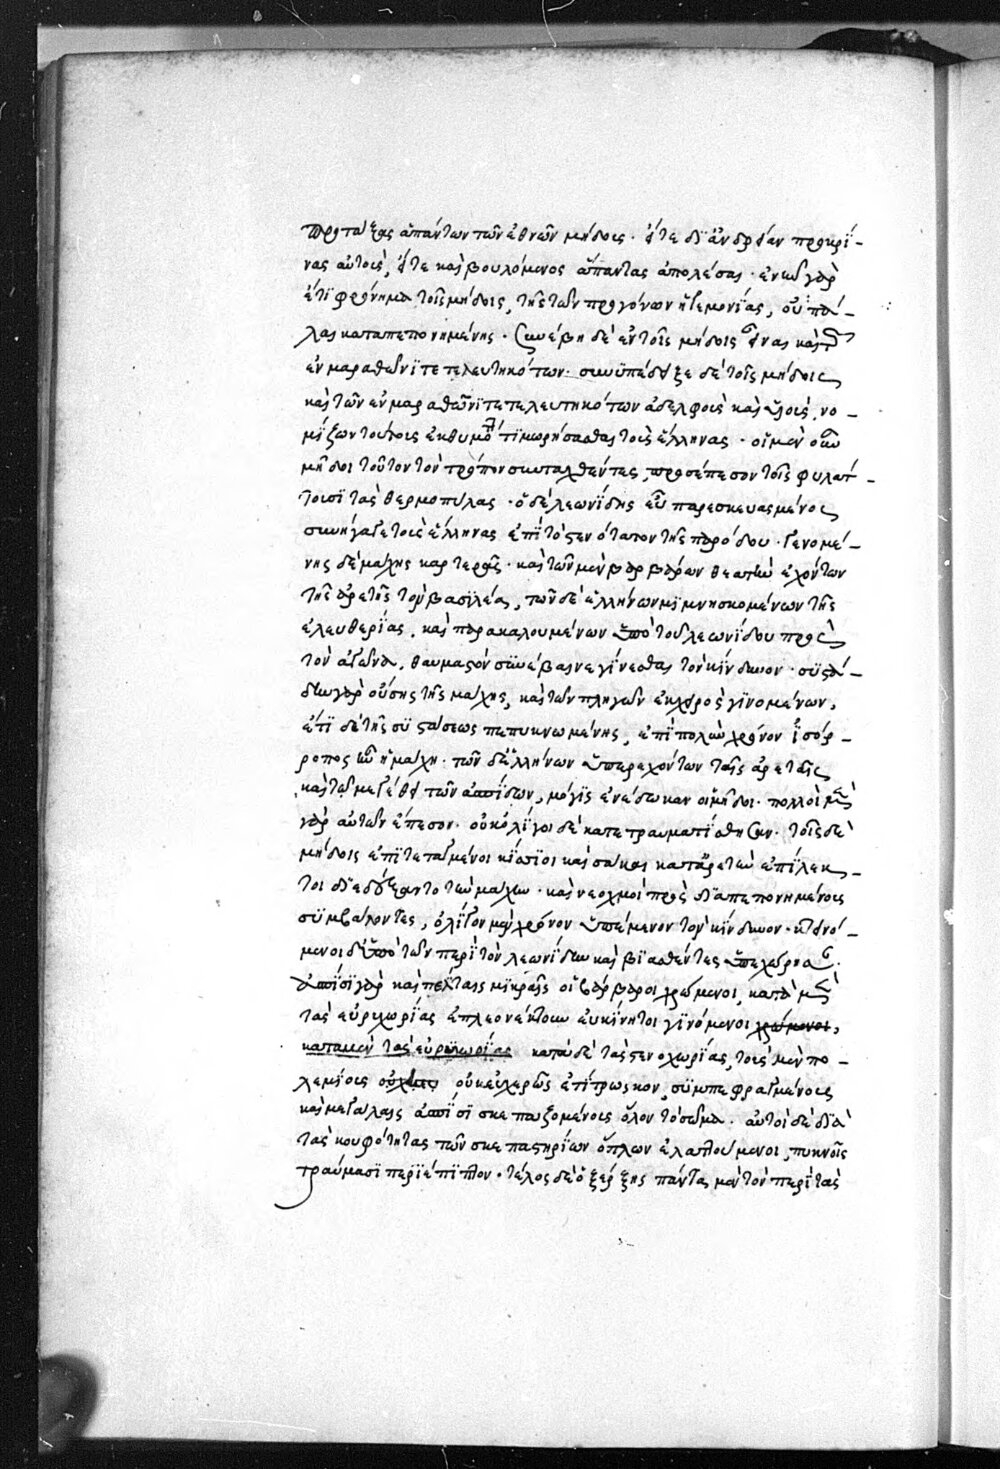 προτάξας ἁπάντων τῶν ἐθνῶν μήδοις· εἴτε δι᾽ ἀνδρείαν προκρί-
νας αὐτοὺς, εἴτε καὶ βουλόμενος ἅπαντας ἀπολέσαι· ἐνῆν γὰρ
ἔτι φρόνημα τοῖς μήδοις, τῆς τῶν προγόνων ἡγεμονίας, οὐ πά-
λαι καταπεπονημένης· συνέβη δὲ ἐν τοῖς μήδοις εἶναι καὶ τῶν
ἐν μαραθῶνι τετελευτηκότων· συνυπέδειξε δὲ τοῖς μήδοις
καὶ τῶν ἐν μαραθῶνι τετελευτηκότων ἀδελφοὺς καὶ υἱοὺς, νο-
μίζων τούτους ἐκθυμότατα τιμωρήσασθαι τοὺς ἕλληνας· οἱ μὲν οὖν
μῆδοι τοῦτον τὸν τρόπον συνταχθέντες, προσέπεσον τοῖς φυλάτ-
τουσι τὰς θερμοπύλας· ὁ δὲ λεωνίδης εὖ παρεσκευασμένος
συνήγαγε τοὺς ἕλληνας ἐπὶ τὸ στενότατον τῆς παρόδου· γενομέ-
νης δὲ μάχης καρτερᾶς· καὶ τῶν μὲν βαρβάρων θεατὴν ἐχόντων
τῆς ἀρετῆς τὸν βασιλέα, τῶν δὲ ἑλλήνων μιμνησκομένων τῆς
ἐλευθερίας, καὶ παρακαλουμένων ὑπὸ τοῦ λεωνίδου πρὸς
τὸν ἀγῶνα, θαυμαστὸν συνέβαινε γίνεσθαι τὸν κίνδυνον· συστά-
δην γὰρ οὔσης τῆς μάχης, καὶ τῶν πληγῶν ἐκ χειρὸς γινομένων,
ἔτι δὲ τῆς συστάσεως πεπυκνωμένης, ἐπὶ πολὺν χρόνον ἰσόρ-
ροπος ἦν ἡ μάχη· τῶν δὲ ἑλλήνων ὑπερεχόντων ταῖς ἀρεταῖς
καὶ τῷ μεγέθει τῶν ἀσπίδων, μόγις ἐνέδωκαν οἱ μῆδοι· πολλοὶ μὲν
γὰρ αὐτῶν ἔπεσον· οὐκ ὀλίγοι δὲ κατετραυματίσθησαν· τοῖς δὲ
μήδοις ἐπιτεταγμένοι κίσσιοι καὶ σάκαι κατ᾽ ἀρετὴν ἐπίλεκ-
τοι διεδέξαντο τὴν μάχην· καὶ νεοχμοὶ πρὸς διαπεπονημένους
συμβαλόντες, ὀλίγον μὲν χρόνον ὑπέμενον τὸν κίνδυνον· κτεινό-
μενοι δ᾽ ὑπὸ τῶν περὶ τὸν λεωνίδην καὶ βιασθέντες ὑπεχώρησαν·
ἀσπίσι γὰρ καὶ πέλταις μικραῖς οἱ βάρβαροι χρώμενοι, κατὰ μὲν
τὰς εὐρυχωρίας ἐπλεονέκτουν εὐκίνητοι γινόμενοι χρώμενοι,
κατὰ μὲν τὰς εὐρυχωρίας κατὰ δὲ τὰς στενοχωρίας, τοὺς μὲν πο-
λεμίους οὐκ εὐχερῶς ἐτίτρωσκον, συμπεφραγμένους
καὶ μεγάλαις ἀσπίσι σκεπαζομένους ὅλον τὸ σῶμα· αὐτοὶ δὲ διὰ
τὰς κουφότητας τῶν σκεπαστηρίων ὅπλων ἐλαττούμενοι, πυκνοῖς
τραύμασι περιέπιπτον· τέλος δὲ ὁ ξέρξης πάντα μὲν τὸν περὶ τὰς